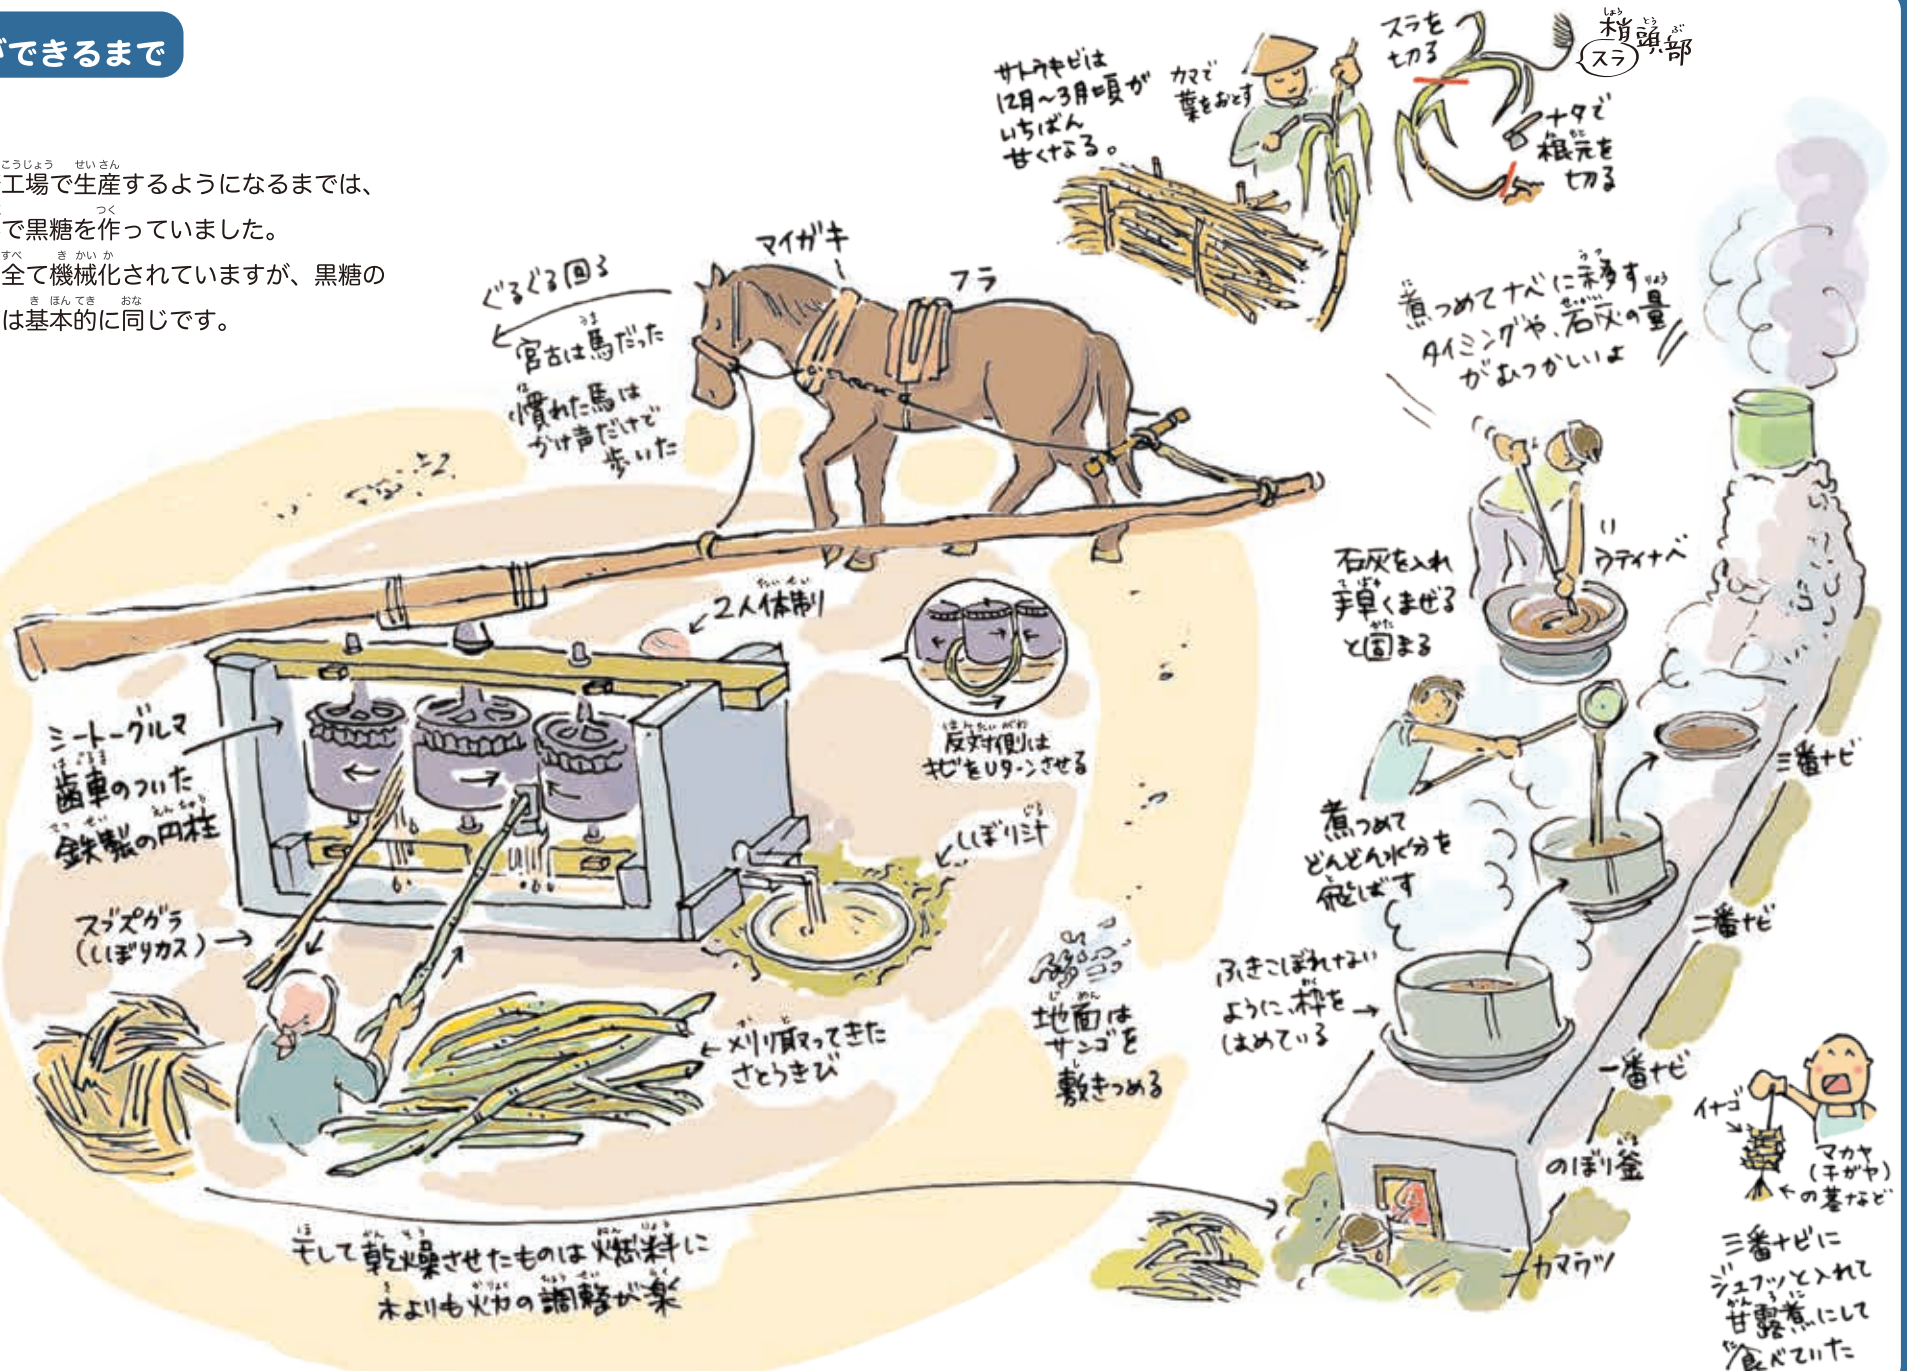 ができるまで
工場で生産するようになるまでは、
で黒糖を作っていました。
全て機械化されていますが、黒糖の
は基本的に同じです。
サトウキビは
12月〜3月頃が
いちばん
甘くなる。
カマで
葉をおとす
スラを
切る
梢頭部
スラ
ナタで
根元を
切る
マイガキ
フラ
ぐるぐる回る
宮古は馬だった
慣れた馬は
かけ声だけで
歩いた
煮つめてナベに移す
タイミングや、石灰の量
がむつかしいよ
ウティナベ
石灰を入れ
手早くまぜる
と固まる
2人体制
反対側は
キビをUターンさせる
ミートーグルマ
歯車のついた
鉄製の円柱
しぼり汁
スブズガラ
(しぼりカス)
煮つめて
どんどん水分を
飛ばす
三番ナビ
二番ナビ
一番ナビ
ふきこぼれない
ように、枠を
はめている
地面は
サンゴを
敷きつめる
刈り取ってきた
さとうきび
のぼり釜
カマウツ
干して乾燥させたものは燃料に
木よりも火力の調整が楽
イナゴ
マカヤ
(チガヤ)
の茎など
三番ナビに
ジュワッと入れて
甘露煮にして
食べていた